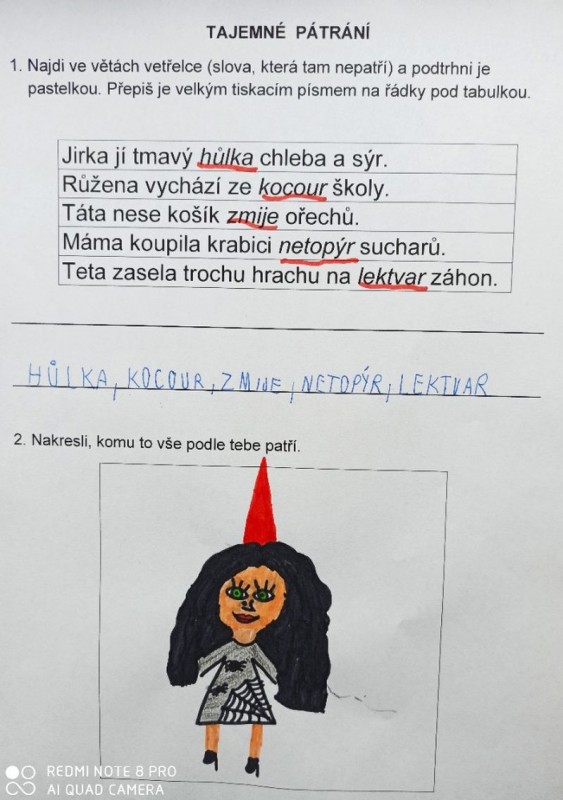 TAJEMNÉ PÁTRÁNÍ
1. Najdi ve větách vetřelce (slova, která tam nepatří) a podtrhni je
pastelkou. Přepiš je velkým tiskacím písmem na řádky pod tabulkou.
Jirka jí tmavý hůlka chleba a sýr.
Růžena vychází ze kocour školy.
Táta nese košík zmije ořechů.
Máma koupila krabici netopýr sucharů.
Teta zasela trochu hrachu na lektvar záhon.
HŮLKA, KOCOUR, ZMIJE, NETOPÝR, LEKTVAR
2. Nakresli, komu to vše podle tebe patří.
REDMI NOTE 8 PRO
AI QUAD CAMERA